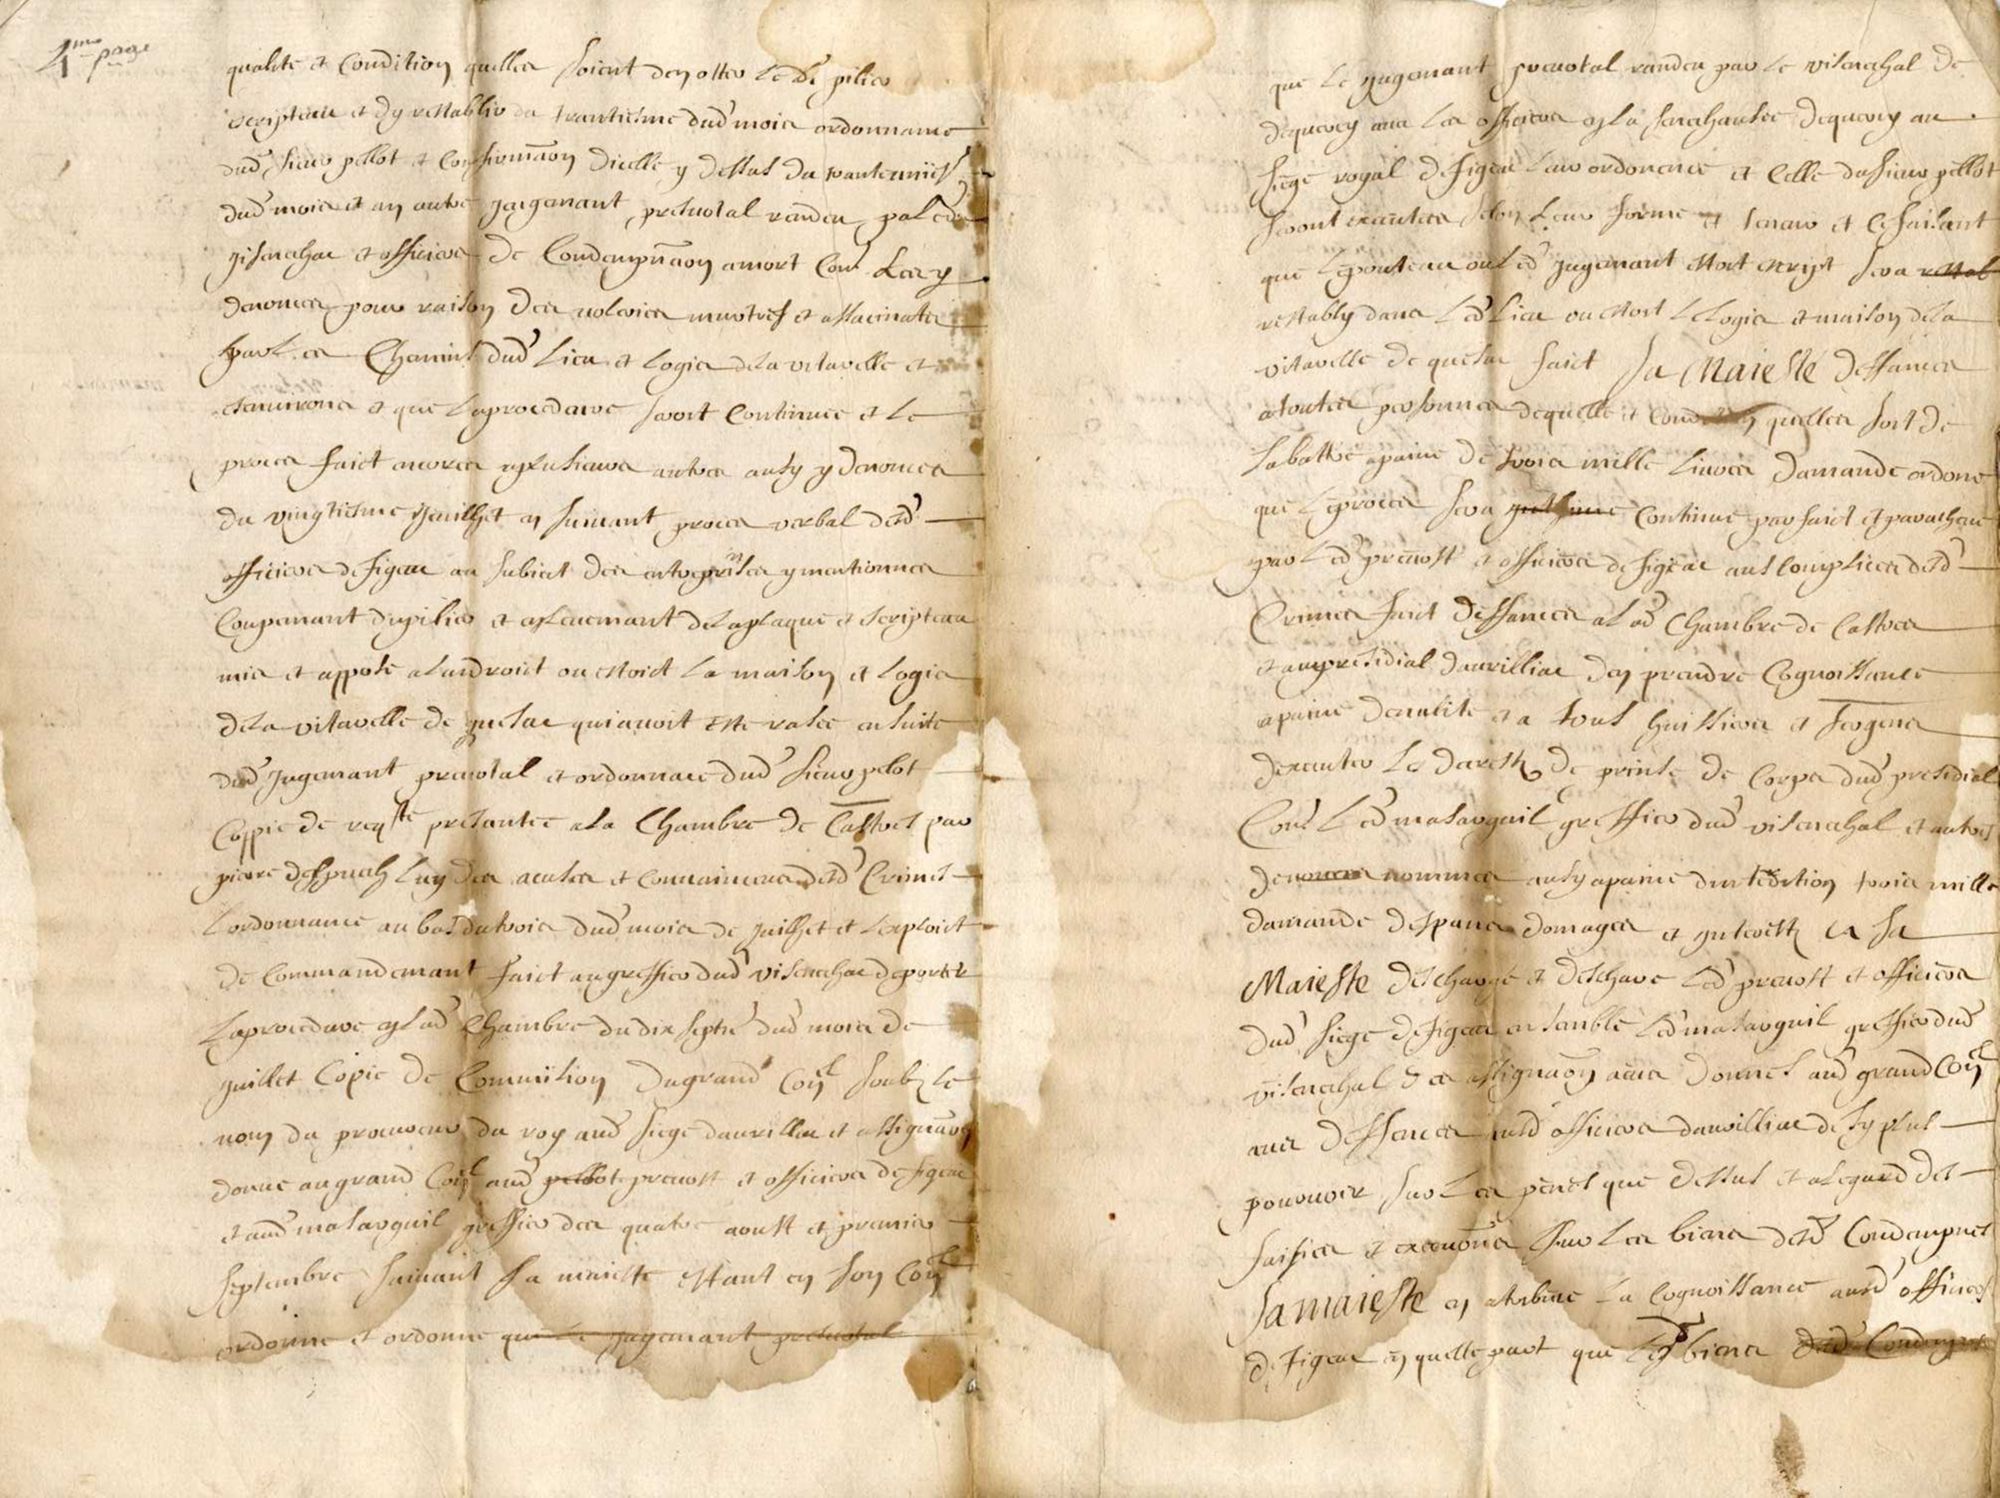 4me page
qualité et Condition quelles soient den otter le dt pilier
scripteau et dy restablir du trantiesme dud mois ordonnance
dud sieur pellot et Confirmaon dicelle y dessus du
dud mois et an autre jugemant prevotal randeu par led
visenechal et officiers de Condempnaon amort Con les y
denomes pour raison des voleries murtres et assacinats
par les Chemins dud lieu et logis dela vitarelle et
es environs et que la procedure seroit Continuee et le
proces faict encores a plusieurs autres ausy y denomes
du vingtiesme Juillhet en suivant proces verbal desd
officiers de figeac au subiect des entreprinses y mentionnes
Coupemant du pilier et enlevemant dela plaque et scripteau
mis et appose alandroict ou estoict la maison et logis
dela vitarelle de quesac qui avoit este rasee en suite
dud Jugemant prevotal et ordonnance dud sieur pelot
Coppie de reqte presantee ala Chambre de Castres par
pierre despruch luy des acuses et convaincus desd Crimes
Lordonnance au bas du trois dud mois de Juilhet et lexploict
de Commandemant faict au greffier dud visenechal de porter
la procedure en lad Chambre du dix septie dud mois de
Juillet Copie de Commission du grand Conl soubz le
nom du procureur du roy aud siege daurillac et assignaon
donne au grand Conl aud pellot prevost et officiers de figeac
et aud malarguil greffier des quatre aoust et premier
septembre suivant sa maieste estant en son Conl
ordonne et ordonne que le jugemant prevotal
que le jugemant prevotal randeu par le visenechal de
dequercy avec les officiers en la senechaulsee dequercy au
siege royal de figeac leur ordonence et Celle du sieur pellot
seront executees selon leur forme et teneur et Ce faisant
que le pouteau ou led jugemant estoit escript sera restab
restably dans led lieu ou estoit le logis et maison dela
vitarelle de quesac faict sa Maiesté deffances
atoutes personnes dequelle et condition quelles soit de
labattre apaine de trois mille livres damande ordone
que le proces sera continue parfaict et paracheve
par led prevost et officiers de figeac aus Complices desd
Crimes faict deffances a lad Chambre de Castres
et au presidial daurilliac den prendre Cognoissance
apaine de nulite et a tous huissiers et sergens
dexecuter les decrest de prinse de Corps dud presidial
Con led malarguil greffier dud visenechal et autres
denomes nommes ausy apaine dintediction trois mille
damande despans domages et interest ca sa
Maieste descharge et descharge led prevost et officiers
dud siege de figeac ensemble led malarguil greffier dud
visenechal des assignaon a eux donnes aud grand Conl
avec deffences ausd officiers daurilliac de sy plus
pourvoir sur les penes que dessus et alegard des
saisies et execuons sur les biens desd Condempnes
sa maieste en atribue la Cognoissance ausd offices
de figeac en quelle part que les biens desd Condempnes